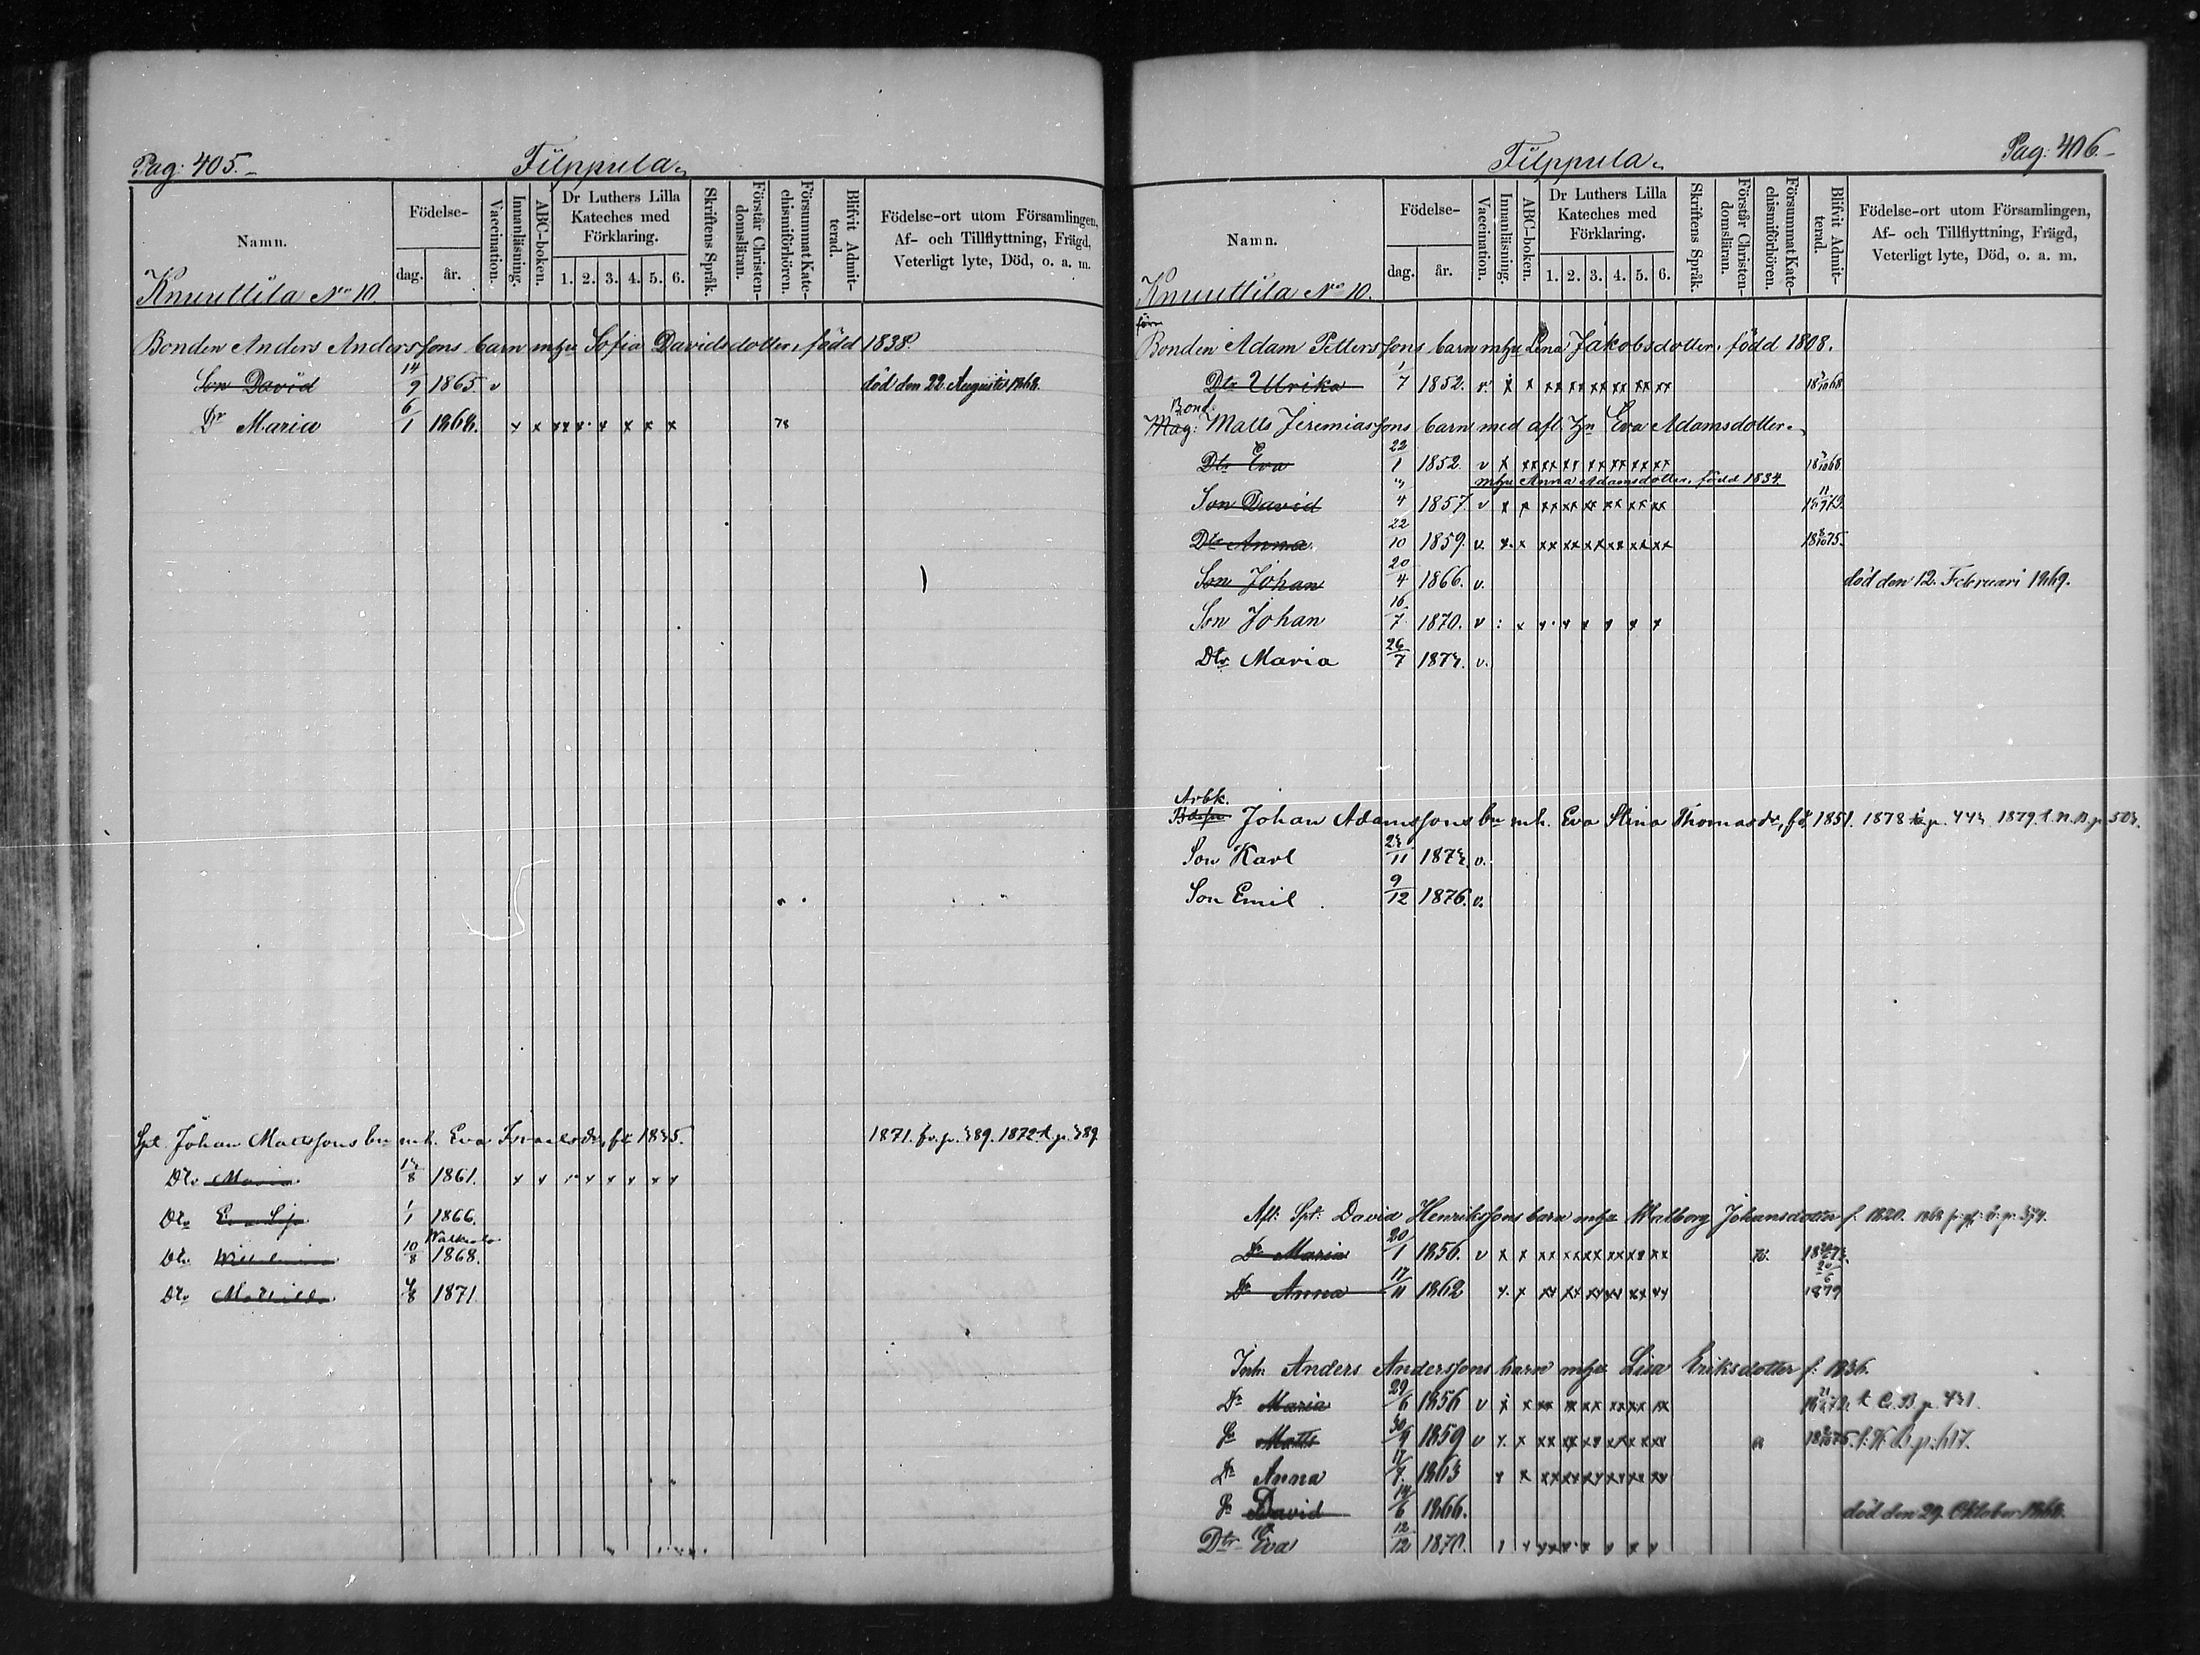 Pag: 405.
Filppula.
Namn.
Födelse-
dag. år.
Vaccination.
Innanläsning.
ABC-boken.
Dr Luthers Lilla
Kateches med
Förklaring.
1. 2. 3. 4. 5. 6.
Skriftens Språk.
Förstår Christen-
domsläran.
Försummat Kate-
chismiförhören.
Blifvit Admit-
terad.
Födelse-ort utom Församlingen,
Af- och Tillflyttning, Frägd,
Veterligt lyte, Död, o. a. m.
Knuuttila No 10
Bonden Anders Anderssons barn mhu Sofia Davidsdotter, född 1838.
Son David 14/9 1865. v död den 22 Augusti 1868.
Dr Maria 6/1 1868. x x xx x x x x x 78
Spt. Johan Mattssons bn mh. Eva Israelsdr, fd 1835. 1871. fr. p. 389. 1872. t. p. 389
Dtr Maria 13/8 1861.
Dtr 1/1 1866.
Dtr 10/8 1868.
Dtr Mathilda 4/8 1871
Pag: 406.
Filppula.
Namn.
Födelse-
dag. år.
Vaccination.
Innanläsning.
ABC-boken.
Dr Luthers Lilla
Kateches med
Förklaring.
1. 2. 3. 4. 5. 6.
Skriftens Språk.
Förstår Christen-
domsläran.
Försummat Kate-
chismiförhören.
Blifvit Admit-
terad.
Födelse-ort utom Församlingen,
Af- och Tillflyttning, Frägd,
Veterligt lyte, Död, o. a. m.
Knuuttila No 10.
förre
Bonden Adam Petterssons barn mhu Lena Jakobsdotter, född 1808.
Dtr Ulrika 1/7 1852. v. x x xx xx xx xx xx xx
Bond.
Mag: Matts Jeremiassons barn med afl. hu Eva Adamsdotter.
Dtr Eva 22/1 1852. v x xx xx xx xx xx xx xx
mhu Anna Adamsdotter, född 1834
Son David 1857. v x x xx xx xx xx xx xx
Dtr Anna 22/10 1859. v. x. x xx xx xx xx xx xx
Son Johan 20/4 1866. v. död den 12. Februari 1869.
Son Johan 16/7 1870. v
Dtr Maria 26/7 1873. v.
Arbk.
Johan Adamssons bn mh. Eva Stina Thomasdr, fd. 1851. 1878 p. 443. 1879. t. N. B. p. 503.
Son Karl 23/11 1873. v.
Son Emil 9/12 1876. v.
Afl: Spt: David Henrikssons barn mhu Walborg Johansdotter f. 1820.
Dr Maria 20/1 1856. v x x xx xx xx xx xx xx
Dr Anna 17/11 1862 x x xx xx xx xx xx xx 20/6 1879
Inh. Anders Anderssons barn mhu Lisa Eriksdotter f: 1836.
Dr Maria 29/6 1856 v x x xx xx xx xx xx xx t. C. B. p. 431.
Sn Matts 30/9 1859 v x x xx xx xx xx xx xx
Dr Anna 17/7 1863 x x xx xx xx xx xx xx
Sn David 14/6 1866. död den 29. Oktober 1868.
Dtr Eva 12/12 1870.